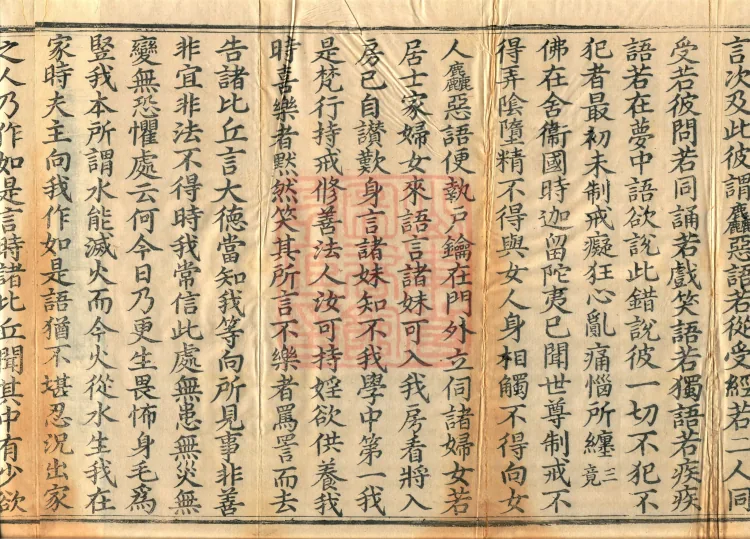 言次及此彼謂麤惡語若從受經若二人同
受若彼問若同誦若戲笑語若獨語若疾疾
語若在夢中語欲說此錯說彼一切不犯不
犯者最初未制戒癡狂心亂痛惱所纏三竟
佛在舍衞國時迦留陀夷已聞世尊制戒不
得弄陰墮精不得與女人身相觸不得向女
人麤惡語便執戶鑰在門外立伺諸婦女若
居士家婦女來語言諸妹可入我房看將入
房已自讃歎身言諸妹知不我學中第一我
是梵行持戒修善法人汝可持婬欲供養我
時喜樂者默然笑其所言不樂者罵詈而去
告諸比丘言大德當知我等向所見事非善
非宜非法不得時我常信此處無患無災無
變無恐懼處云何今日乃更生畏怖身毛爲
豎我本所謂水能滅火而今火從水生我在
家時夫主向我作如是語猶不堪忍況出家
之人乃作如是言時諸比丘聞其中有少欲